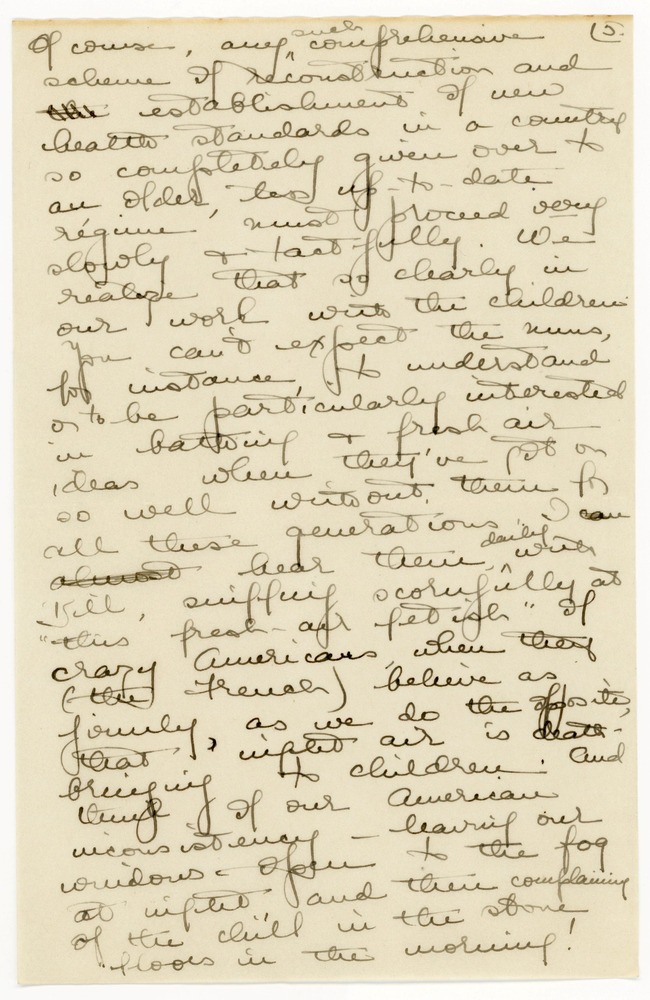 15.
Of course, any such comprehensive
scheme of reconstruction and
the establishment of new
health standards in a country
so completely given over to
an older, less up-to-date
régime, must proceed very
slowly & tactfully. We
realize that so clearly in
our work with the children
You can't expect the nuns,
for instance, to understand
or to be particularly interested
in bathing & fresh air
ideas when they've got on
so well without them for
all these generations. I can
almost hear them, daily, with
Jill, sniffing scornfully at
"this fresh-air fetish" of
crazy Americans, when they
(the French) believe as
firmly, as we do the opposite,
that night air is death-
bringing to children. And
think of our American
inconsistency – leaving our
windows open to the fog
at night, and then complaining
of the chill in the stone
floors in the morning!